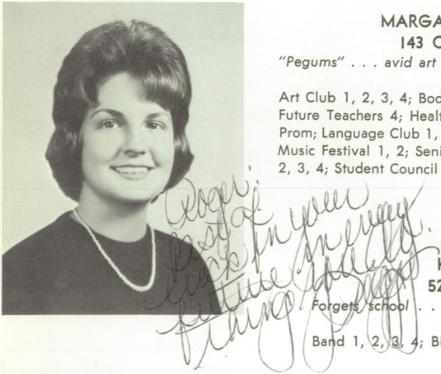 MARGA
143 C
"Pegums" . . . avid art
Art Club 1, 2, 3, 4; Boo
Future Teachers 4; Healt
Prom; Language Club 1,
Music Festival 1, 2; Seni
2, 3, 4; Student Council
Roger:
Best of
luck in your
future in every
thing you do.
Peggy
52
Forgets school . .
Band 1, 2, 3, 4; Bi